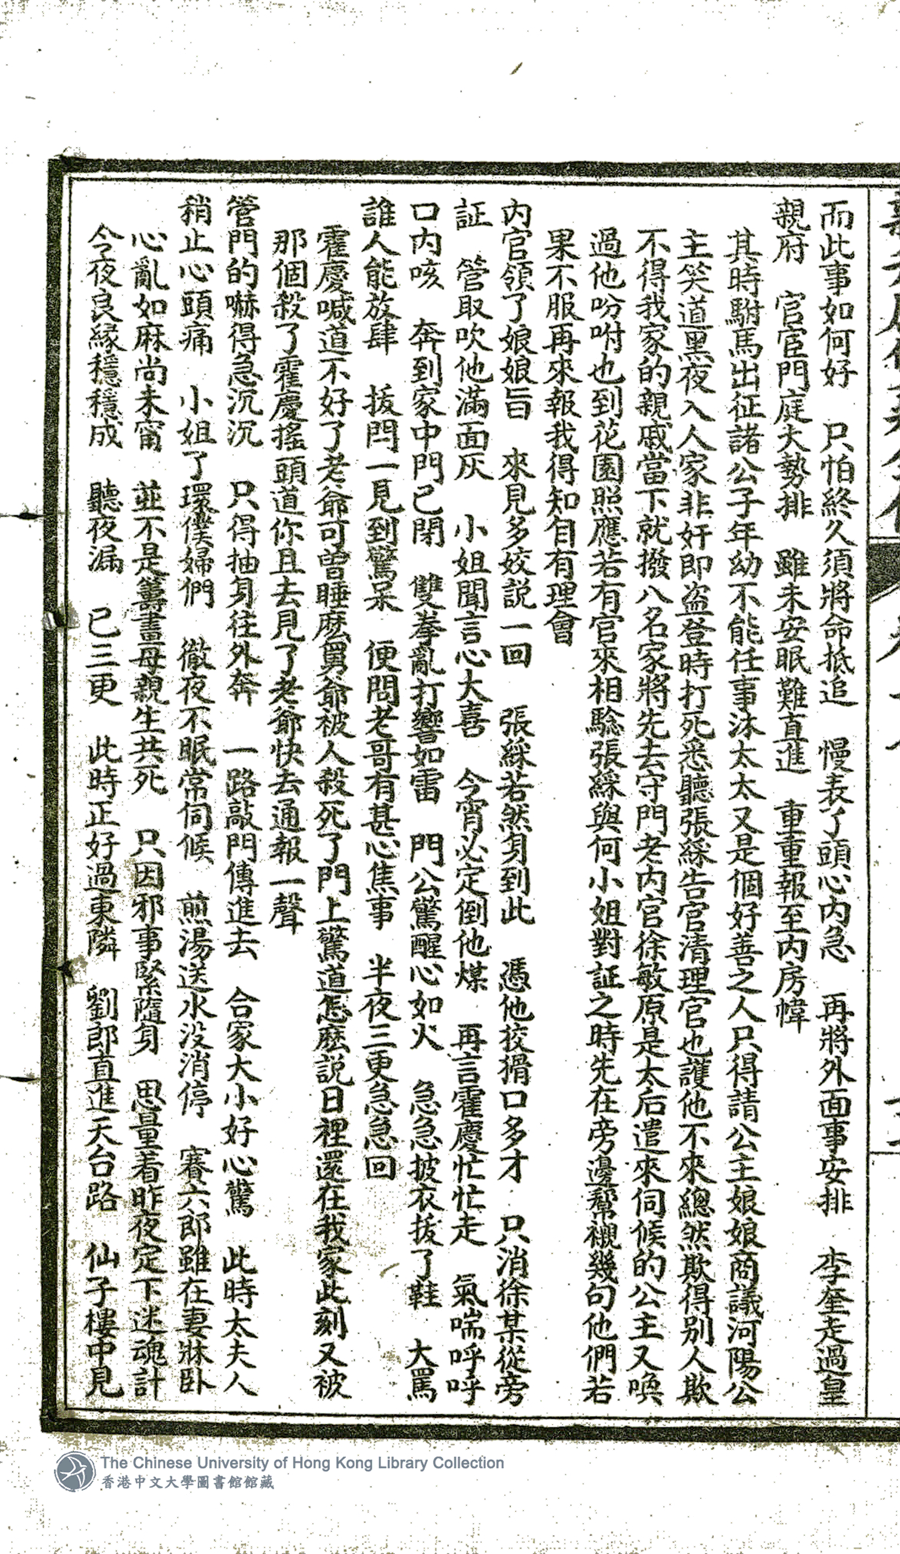 而此事如何好　只怕終久須將命抵追　慢表了頭心內急　再將外面事安排　李奎走過皇
親府　官宦門庭大勢排　雖未安眠難直進　重重報至內房幃
其時駙馬出征諸公子年幼不能任事沐太太又是個好善之人只得請公主娘娘商議河陽公
主笑道黑夜入人家非奸即盗登時打死悉聽張綵告官清理官也護他不來總然欺得别人欺
不得我家的親戚當下就撥八名家將先去守門老內官徐敏原是太后遣來伺候的公主又喚
過他吩咐也到花園照應若有官來相驗張綵與何小姐對証之時先在旁邊幫襯幾句他們若
果不服再來報我得知自有理會
內官領了娘娘旨　來見多姣説一回　張綵若然身到此　憑他狡猾口多才　只消徐某從旁
証　管取吹他滿面灰　小姐聞言心大喜　今宵必定倒他煤　再言霍慶忙忙走　氣喘呼呼
口內咳　奔到家中門已閉　雙拳亂打響如雷　門公驚醒心如火　急急披衣拔了鞋　大罵
誰人能放肆　拔閂一見到驚呆　便問老哥有甚心焦事　半夜三更急急回
霍慶喊道不好了老爺可曾睡麽舅爺被人殺死了門上驚道怎麽説日裡還在我家此刻又被
那個殺了霍慶搖頭道你且去見了老爺快去通報一聲
管門的嚇得急沉沉　只得抽身往外奔　一路敲門傳進去　合家大小好心驚　此時太夫人
稍止心頭痛　小姐了環僕婦們　徹夜不眠常伺候　煎湯送水没消停　賽六郎雖在妻牀卧
心亂如麻尚未甯　並不是籌畫母親生共死　只因邪事緊隨身　思量着昨夜定下迷魂計
今夜良緣穩穩成　聽夜漏　已三更　此時正好過東隣　劉郎直進天台路　仙子樓中見
The Chinese University of Hong Kong Library Collection
香港中文大學圖書館館藏